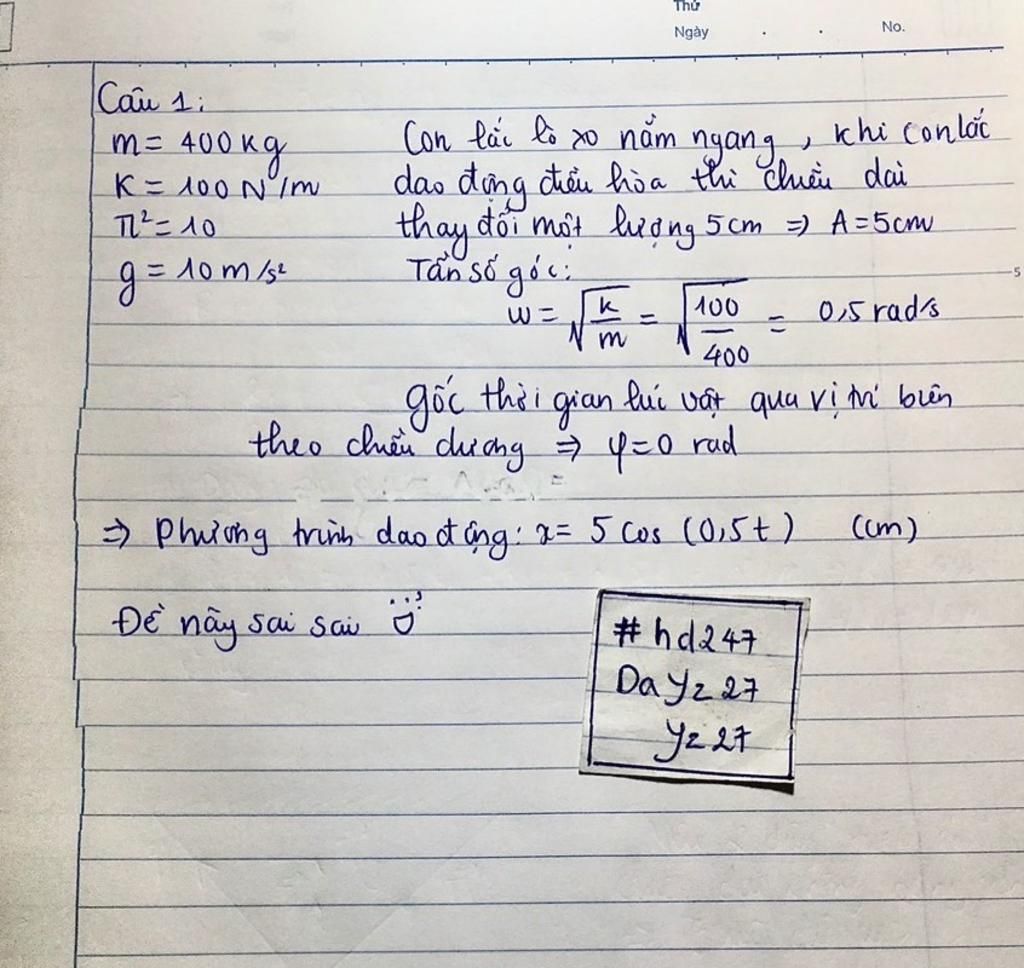 Thứ
Ngày . . No.
Câu 1:
m = 400 kg
K = 100 N/m
π² = 10
g = 10 m/s²
Con lắc lò xo nằm ngang, khi con lắc
dao động điều hòa thì chiều dài
thay đổi một lượng 5cm => A = 5cm
Tần số góc:
ω = √(k/m) = √(100/400) = 0,5 rad/s
gốc thời gian lúc vật qua vị trí biên
theo chiều dương => φ = 0 rad
=> Phương trình dao động: x = 5 cos (0,5t) (cm)
Đề này sai sai
# hd247
Da yz 27
yz 27
5